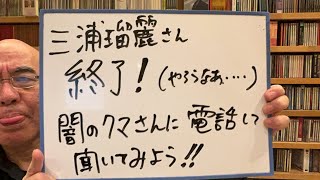 三浦瑠麗さん
終了!(やろうなあ‥‥)
闇のクマさんに電話して
聞いてみよう!!